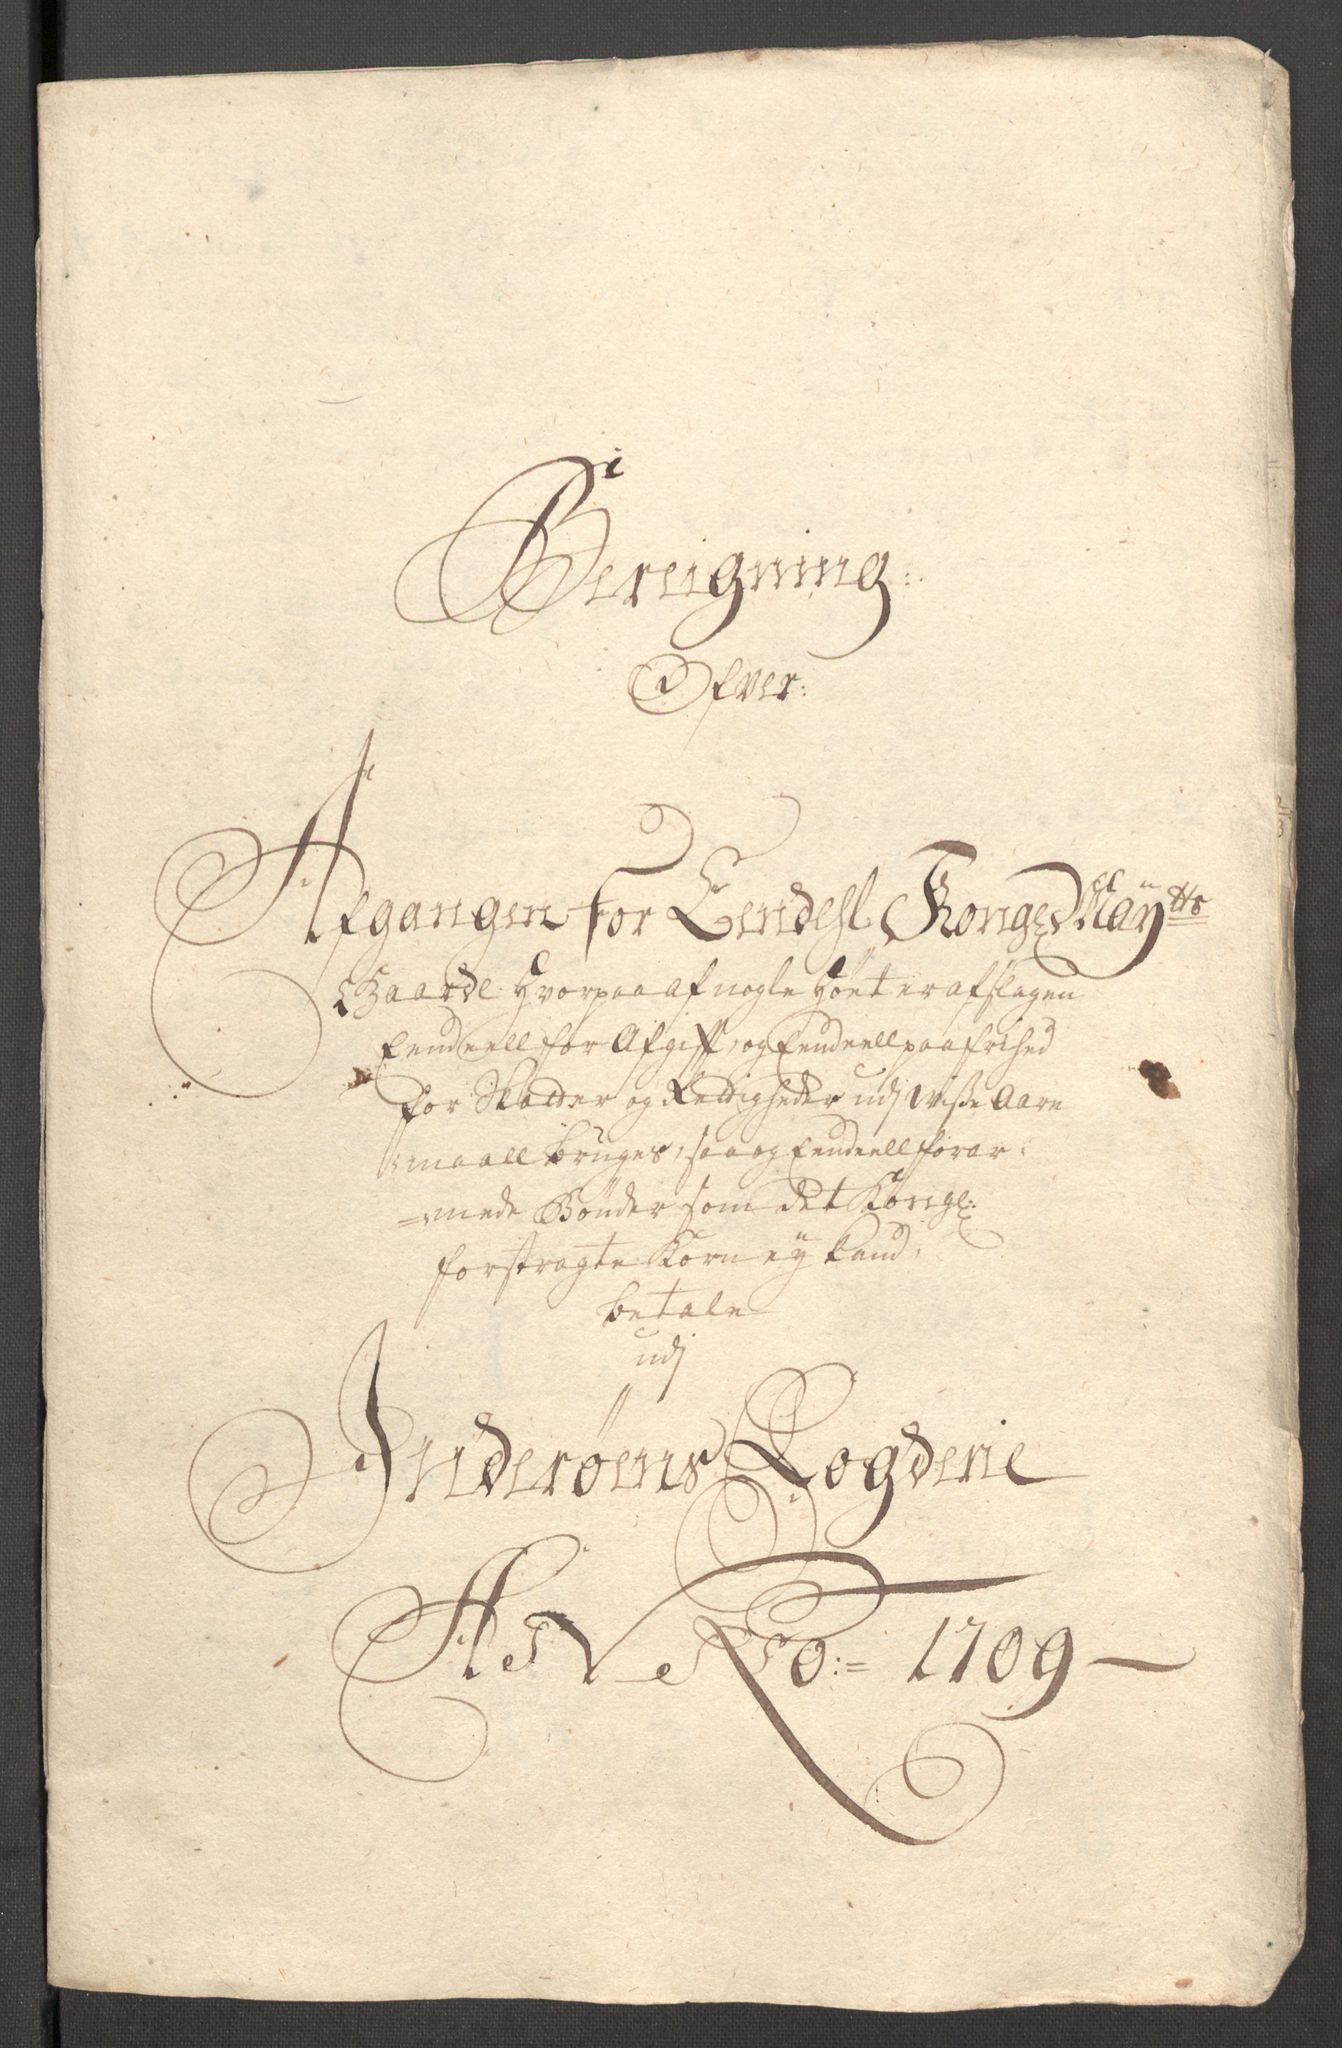 Bereigning:
Ofver:
Afgangen for Eendehl Kongl May.tts
Gaarde Hvorpaa af nogle Høet er afslagen
Eendeell for Afgift, og Eendeell paa frihed
for Skatter og Rettigheder udj Wiße Aare
maall bruges, saa og Eendeell forar-
=mede Bønder som det Kongl:
forstragte Korn ey kand
betale
udj
Inderøens Fogderie
ANNO:= 1709